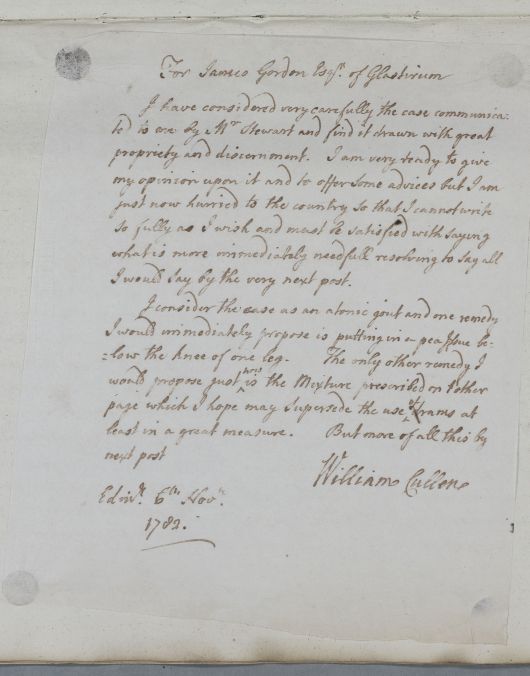 For James Gordon Esqr. of Glastirum
I have considered very carefully the case communica:
ted to me by Mr Stewart and find it drawn with great
propriety and discernment. I am very ready to give
my opinion upon it and to offer some advices but I am
just now hurried to the country so that I cannot write
so fully as I wish and must be satisfied with saying
what is more immediately needfull resolving to say all
I would say by the very next post.
I consider the case as an atonic gout and one remedy
I would immediately propose is putting in a pea Issue be-
-low the knee of one leg. The only other remedy I
would propose just now is the Mixture prescribed on t'other
page which I hope may supersede the use of drams at
least in a great measure. But more of all this by
next post
William Cullen
Edinr. 6th Novr.
1782.